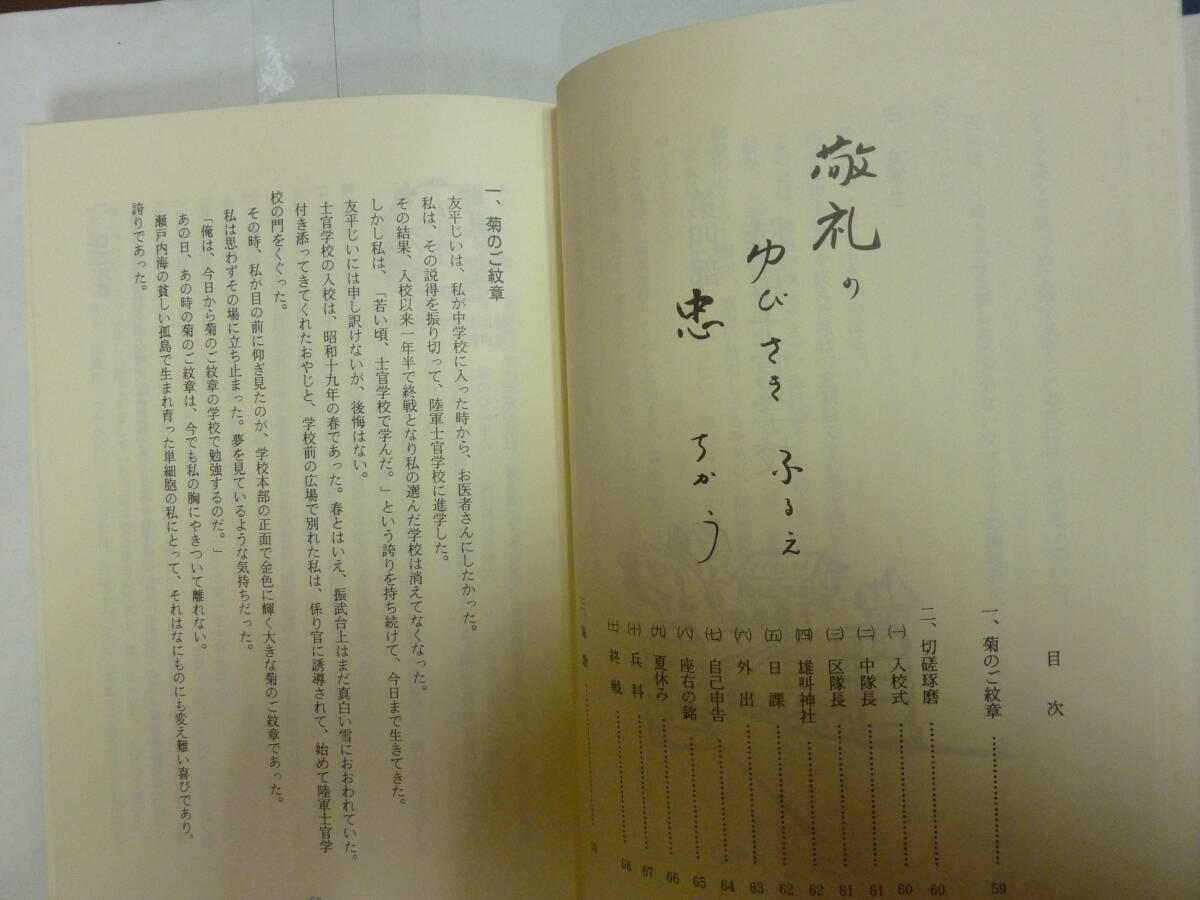 敬礼の
ゆびさきふるえ
忠ちかう
目次
一、菊のご紋章 59
二、切磋琢磨 60
㈠入校式 60
㈡中隊長 61
㈢区隊長 61
㈣雄叫神社 62
㈤日課 62
㈥外出 63
㈦自己申告 64
㈧座右の銘 65
㈨夏休み 66
㈩兵科 67
㈩一終戦 68
一、菊のご紋章
友平じいは、私が中学校に入った時から、お医者さんにしたかった。
私は、その説得を振り切って、陸軍士官学校に進学した。
その結果、入校以来一年半で終戦となり私の選んだ学校は消えてなくなった。
しかし私は、「若い頃、士官学校で学んだ。」という誇りを持ち続けて、今日まで生きてきた。
友平じいには申し訳けないが、後悔はない。
士官学校の入校は、昭和十九年の春であった。春とはいえ、振武台上はまだ真白い雪におおわれていた。
付き添ってきてくれたおやじと、学校前の広場で別れた私は、係り官に誘導されて、始めて陸軍士官学
校の門をくぐった。
その時、私が目の前に仰ぎ見たのが、学校本部の正面で金色に輝く大きな菊のご紋章であった。
私は思わずその場に立ち止まった。夢を見ているような気持ちだった。
「俺は、今日から菊のご紋章の学校で勉強するのだ。」
あの日、あの時の菊のご紋章は、今でも私の胸にやきついて離れない。
瀬戸内海の貧しい孤島で生まれ育った単細胞の私にとって、それはなにものにも変え難い喜びであり、
誇りであった。